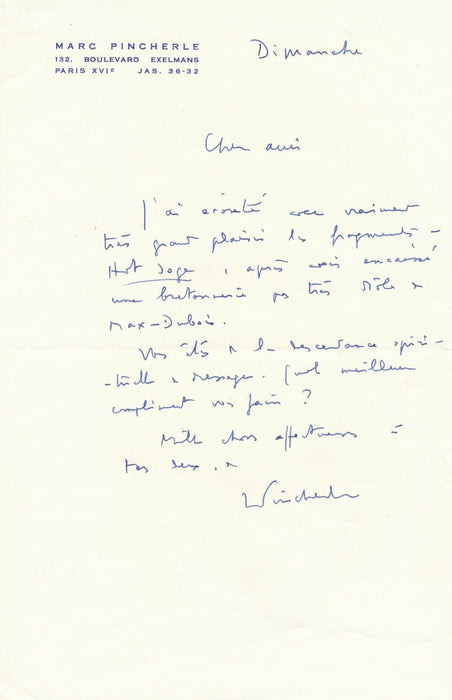 MARC PINCHERLE
132, BOULEVARD EXELMANS
PARIS XVIᴱ JAS. 36-32
Dimanche
Cher ami
J'ai écouté avec vraiment
très grand plaisir les fragments de
Hot Soge, après avoir encaissé
une bretonnerie pas très drôle de
Max-Dubois.
Vous êtes de la descendance spiri-
-tuelle de Messager. Quel meilleur
compliment vous faire ?
Mille choses affectueuses à
tous deux, de
Pincherle